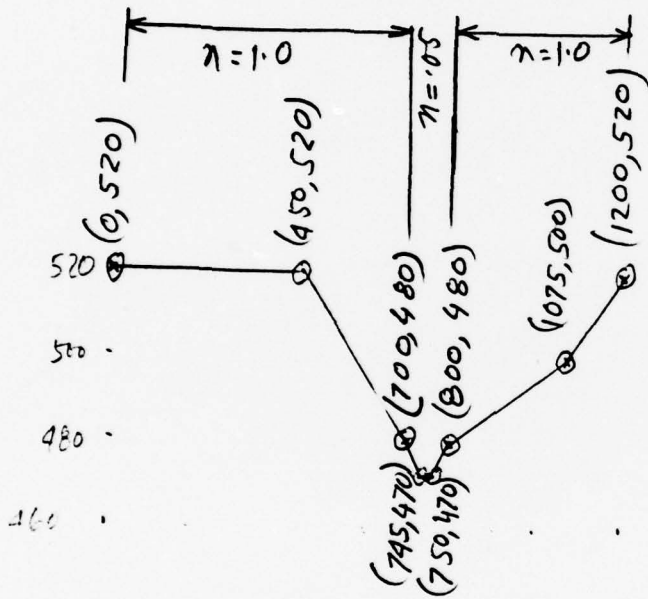 n=1.0
n=.05
n=1.0
(0,520)
(450,520)
(700,480)
(800,480)
(1075,500)
(1200,520)
520
500
480
460
(745,470)
(750,470)